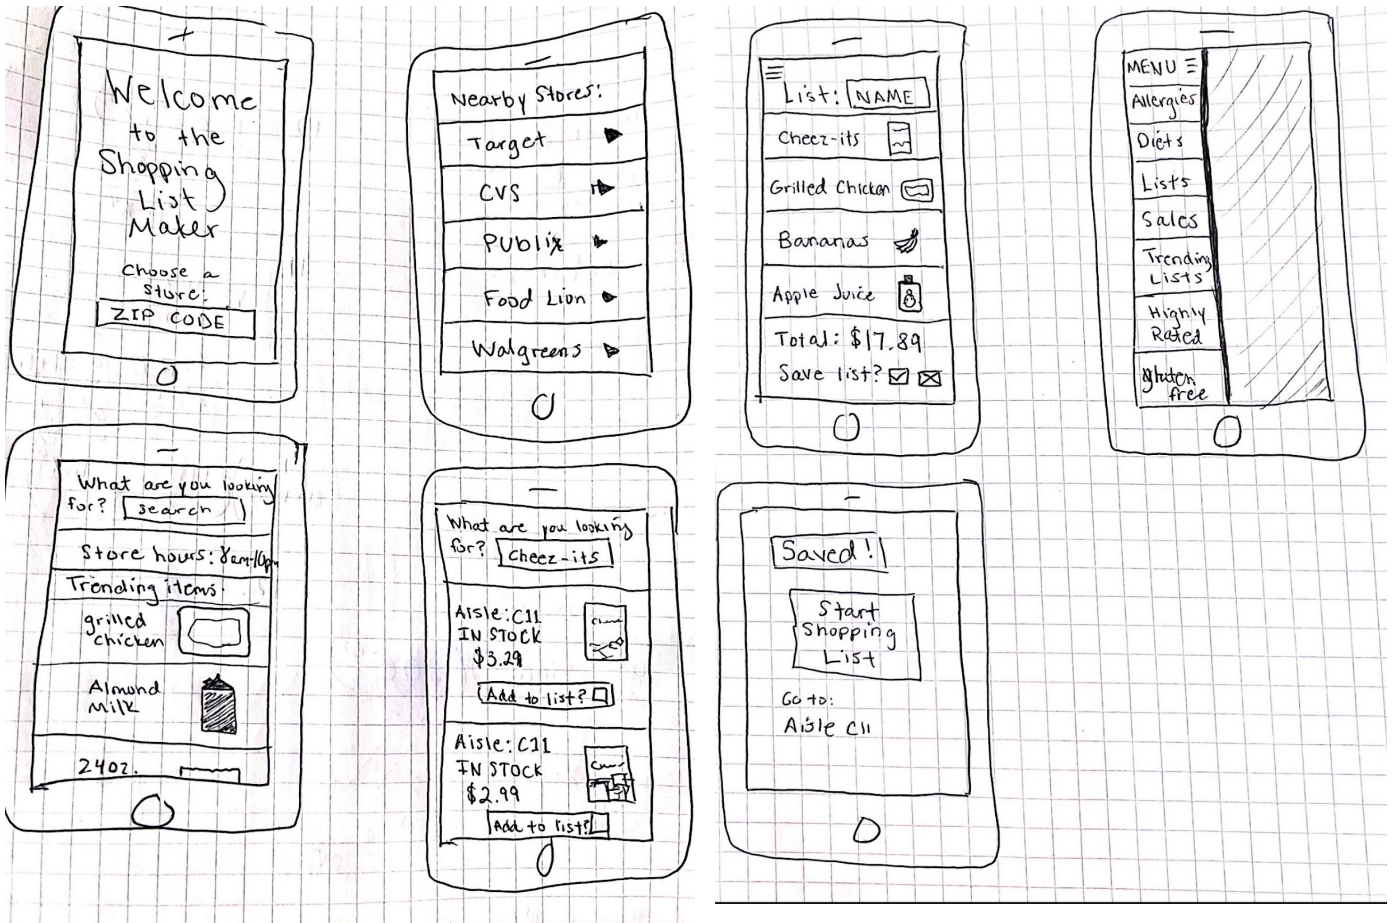 Welcome
to the
Shopping
List
Maker
Choose a
store:
ZIP CODE
Nearby Stores:
Target
CVS
Publix
Food Lion
Walgreens
What are you looking
for? search
Store hours: 8am-10pm
Trending items:
grilled
chicken
Almond
Milk
24oz.
What are you looking
for? Cheez-its
Aisle: C11
IN STOCK
$3.29
Add to list?
Aisle: C11
IN STOCK
$2.99
Add to list?
List: NAME
Cheez-its
Grilled Chicken
Bananas
Apple Juice
Total: $17.89
Save list?
MENU
Allergies
Diets
Lists
Sales
Trending
Lists
Highly
Rated
gluten
free
Saved!
Start
Shopping
List
Go to:
Aisle C11